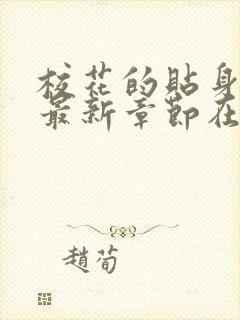 校花的貼身
最新章節在
趙荀